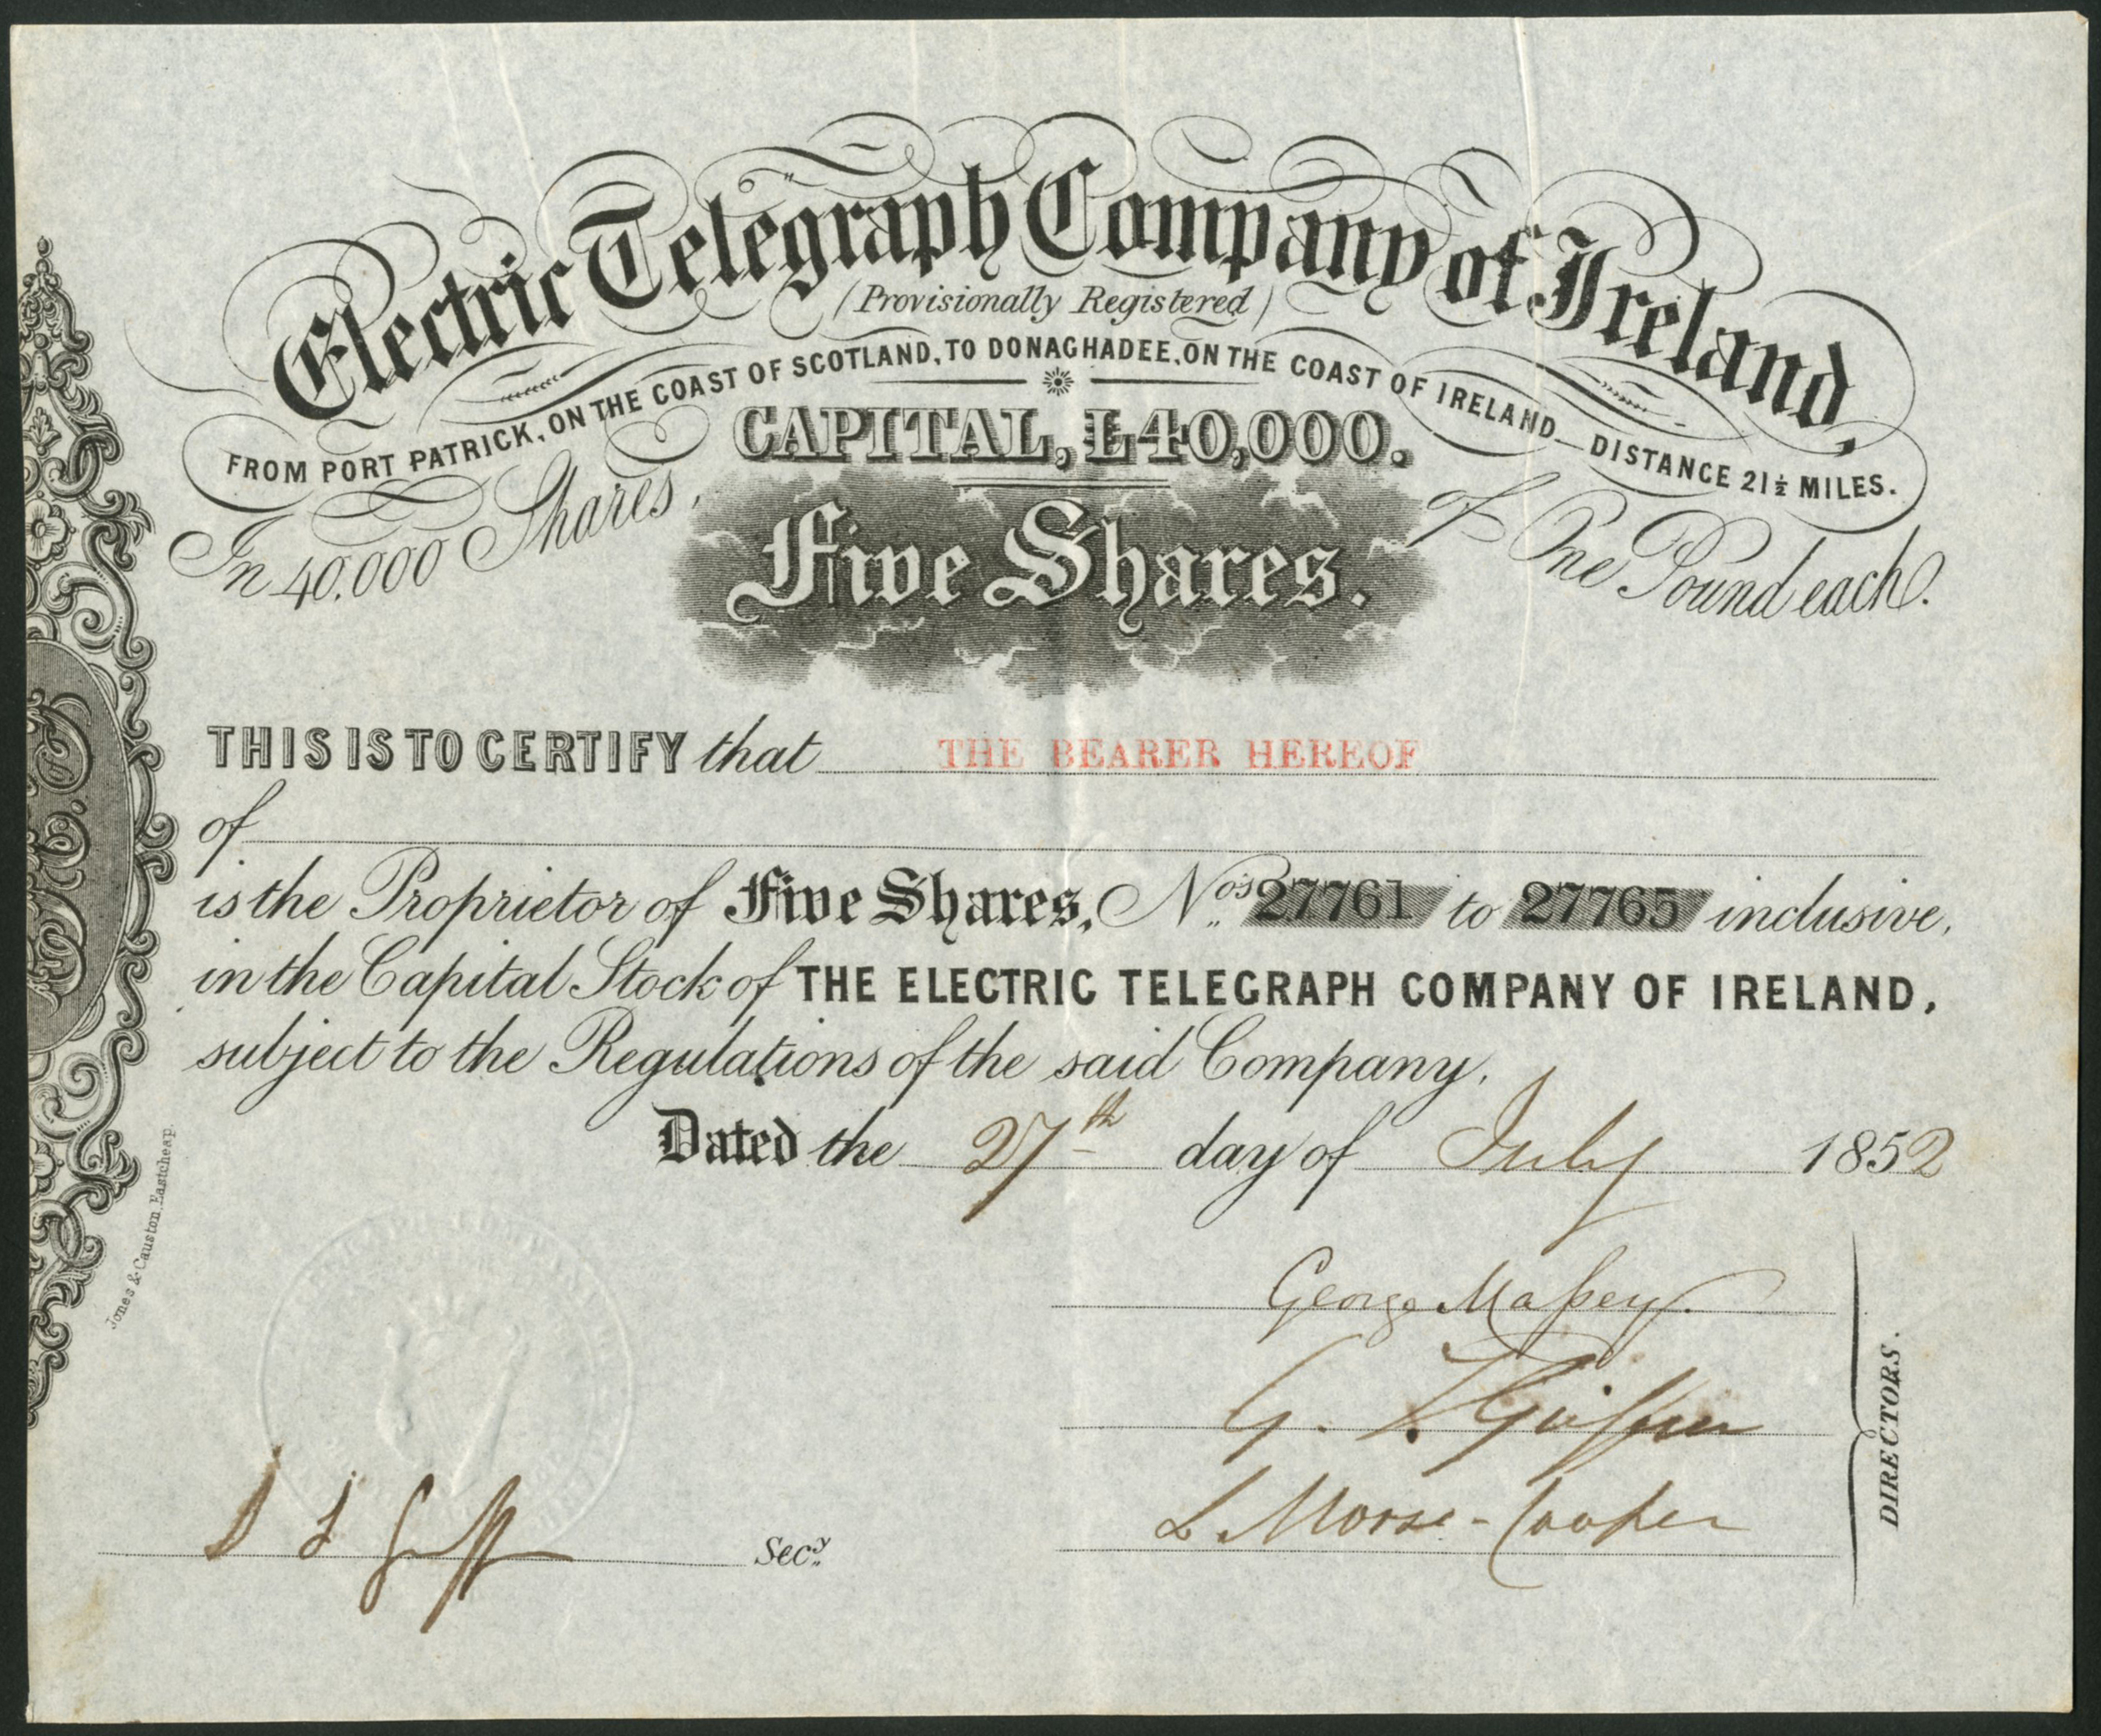 Electric Telegraph Company of Ireland,
(Provisionally Registered)
FROM PORT PATRICK, ON THE COAST OF SCOTLAND, TO DONAGHADEE, ON THE COAST OF IRELAND_DISTANCE 21½ MILES.
CAPITAL, £40,000.
In 40,000 Shares, of One Pound each.
Five Shares.
THIS IS TO CERTIFY that THE BEARER HEREOF
of
is the Proprietor of Five Shares, Nos. 27761 to 27765 inclusive,
in the Capital Stock of THE ELECTRIC TELEGRAPH COMPANY OF IRELAND,
subject to the Regulations of the said Company.
Dated the 27th day of July 1852
Jones & Causton, Eastcheap.
George Massey.
G.
L Morse-Cooper
DIRECTORS.
Secy.